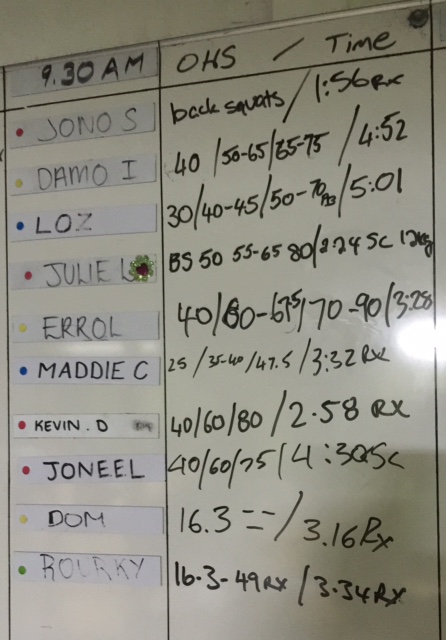 9.30 AM OHS / Time
JONO S back squats / 1:56 RX
DAMO I 40 / 50-65 / 65-75 / 4:52
LOZ 30/40-45/50-70 PB / 5:01
JULIE L BS 50 55-65 80 / 2:24 SC 12kg
ERROL 40/60-67.5/70-90 / 3:28
MADDIE C 25 / 35-40 / 47.5 / 3:32 RX
KEVIN.D 40/60/80 / 2.58 RX
JONEEL 40/60/75 / 4:30 SC
DOM 16.3 == / 3.16 Rx
ROURKY 16.3-49RX / 3.34 RX